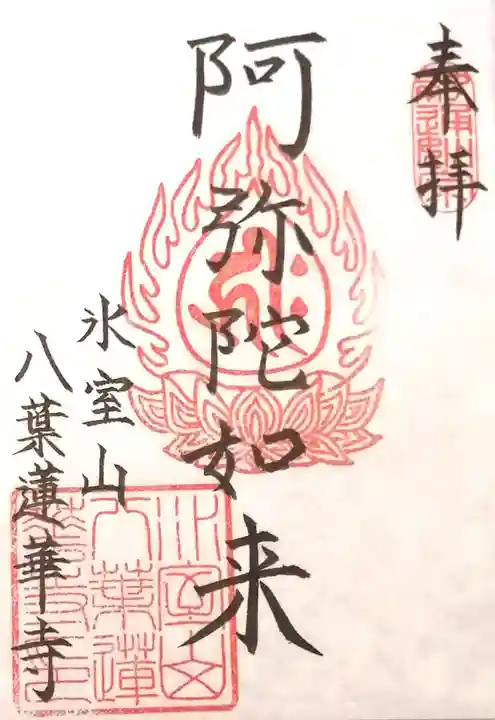 奉拝
阿弥陀如来
氷室山
八葉蓮華寺